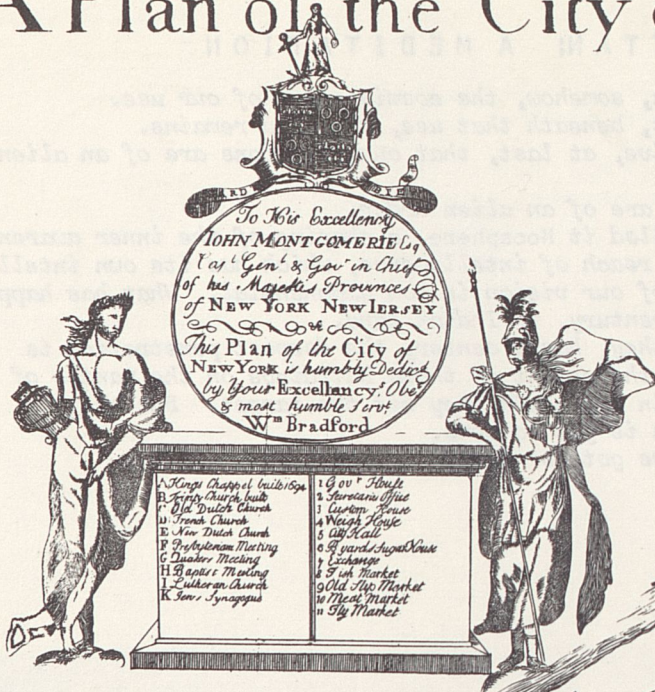 A Plan of the City
GARD BYE
To His Excellency
IOHN MONTGOMERIE Esq
Capt. Genl. & Govr. in Chief
of his Majesties Provinces
of NEW YORK NEW IERSEY
&c
This Plan of the City of
NEW YORK is humbly Dedicd
by Your Excellancy's Obet
& most humble Servt
Wm Bradford
A Kings Chappel built 1694
B Trinity Church built
C Old Dutch Church
D French Church
E New Dutch Church
F Presbyterian Meeting
G Quakers Meeting
H Baptist Meeting
I Lutheran Church
K Jews Synagogue
1 Govr House
2 Secretaris Office
3 Custom House
4 Weigh House
5 City Hall
6 Byards Sugar House
7 Exchange
8 Fish Market
9 Old Slip Market
10 Meat Market
11 Fly Market